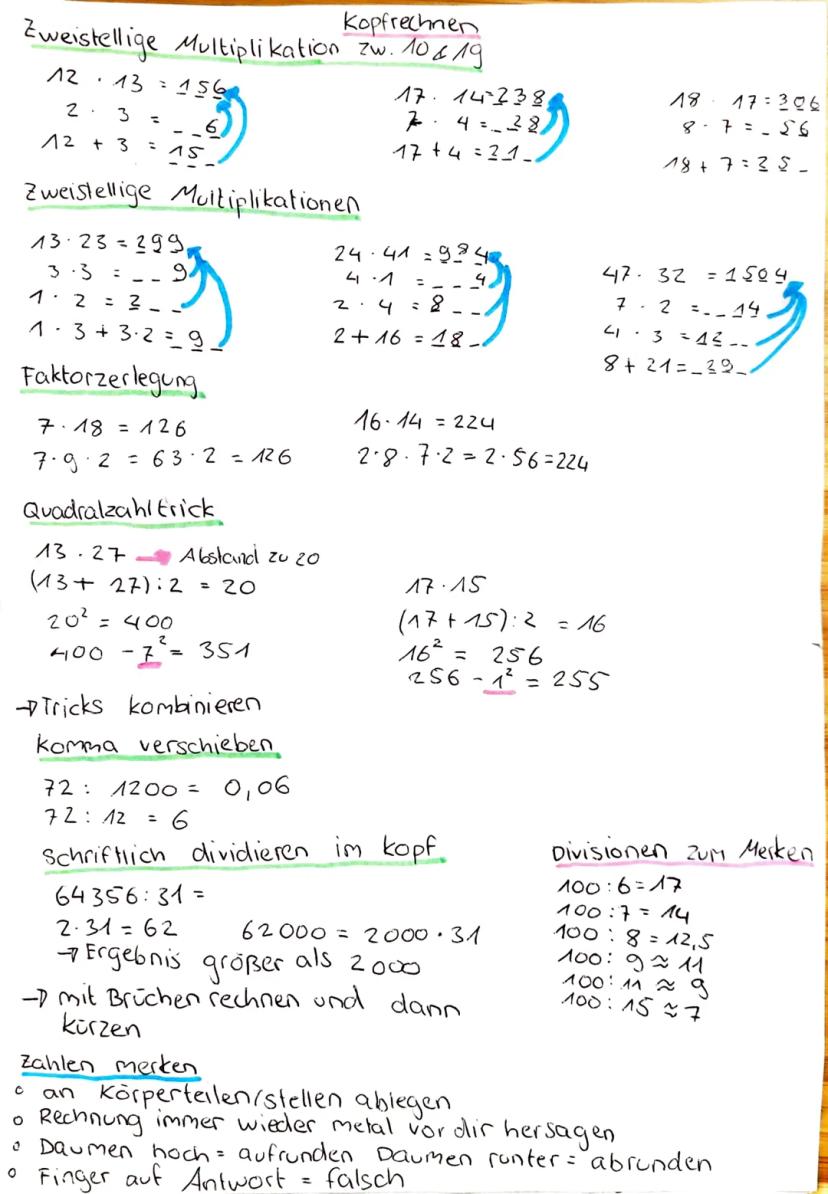 Kopfrechnen
Zweistellige Multiplikation zw. 10 & 19
12 · 13 = 156
2 · 3 = _ _ 6
12 + 3 = 15 _
17 · 14 = 238
7 · 4 = _ 28
17 + 4 = 21 _
18 · 17 = 306
8 · 7 = _ 56
18 + 7 = 25 _
Zweistellige Multiplikationen
13 · 23 = 299
3 · 3 = _ _ 9
1 · 2 = 2 _ _
1 · 3 + 3 · 2 = _ 9 _
24 · 41 = 984
4 · 1 = _ _ 4
2 · 4 = 8 _ _
2 + 16 = 18 _
47 · 32 = 1504
7 · 2 = _ _ 14
4 · 3 = 12 _ _
8 + 21 = _ 29 _
Faktorzerlegung
7 · 18 = 126
7 · 9 · 2 = 63 · 2 = 126
16 · 14 = 224
2 · 8 · 7 · 2 = 2 · 56 = 224
Quadratzahltrick
13 · 27 → Abstand zu 20
(13 + 27) : 2 = 20
20² = 400
400 - 7² = 351
17 · 15
(17 + 15) : 2 = 16
16² = 256
256 - 1² = 255
→ Tricks kombinieren
Komma verschieben
72 : 1200 = 0,06
72 : 12 = 6
Schriftlich dividieren im Kopf
64356 : 31 =
2 · 31 = 62 62000 = 2000 · 31
→ Ergebnis größer als 2000
→ mit Brüchen rechnen und dann
kürzen
Divisionen zum Merken
100 : 6 = 17
100 : 7 = 14
100 : 8 = 12,5
100 : 9 ≈ 11
100 : 11 ≈ 9
100 : 15 ≈ 7
Zahlen merken
o an Körperteilen/stellen ablegen
o Rechnung immer wieder metal vor dir hersagen
o Daumen hoch = aufrunden Daumen runter = abrunden
o Finger auf Antwort = falsch